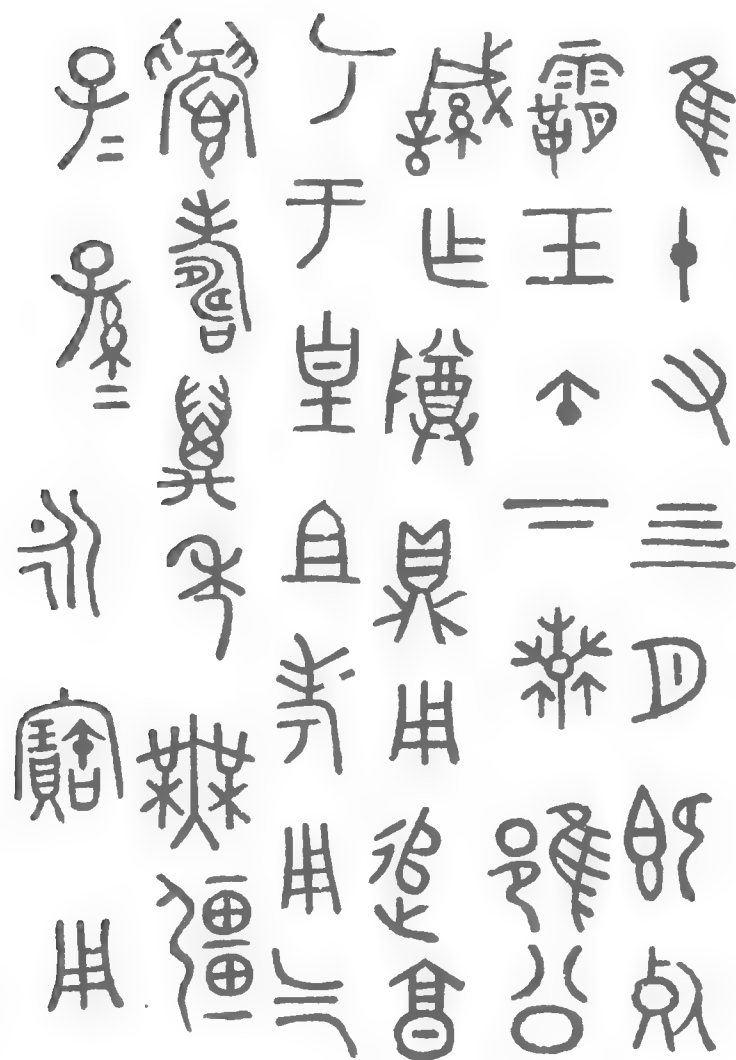 隹十又四月既死
霸壬午下雍公
諴乍𨺅鼎用追享
丂于皇且考用气
眉壽萬年無疆
子=孫=永寶用